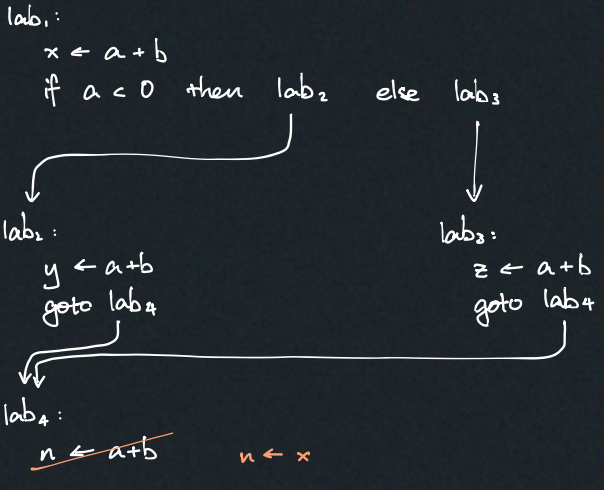 lab₁:
x ← a + b
if a < 0 then lab₂ else lab₃
lab₂:
y ← a+b
goto lab₄
lab₃:
z ← a+b
goto lab₄
lab₄:
n ← a+b n ← x